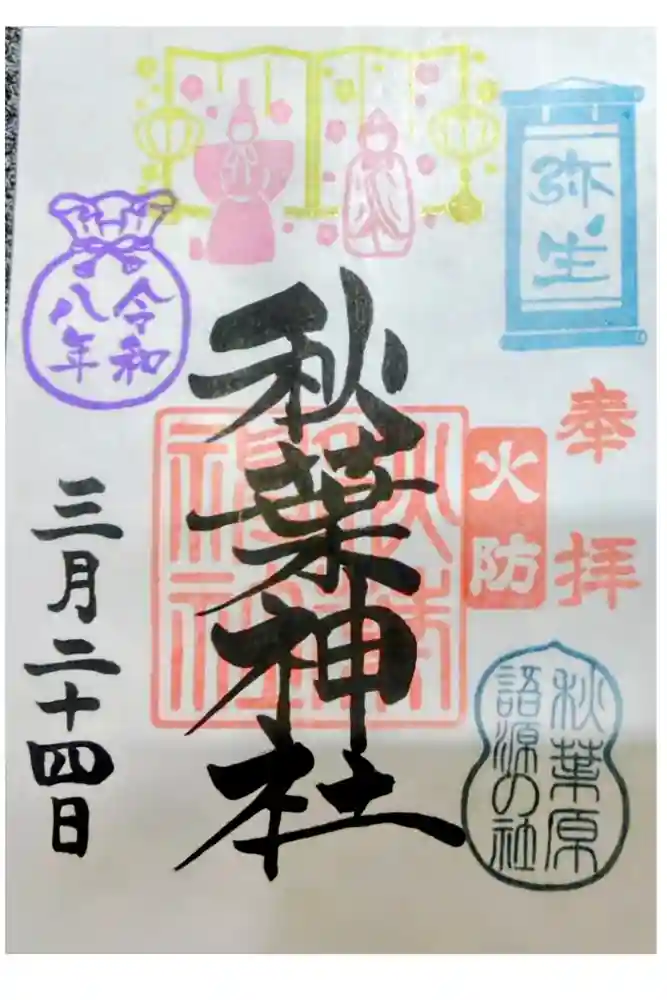 弥生
奉拝
火防
秋葉原
語源の社
秋葉神社
令和
八年
三月二十四日